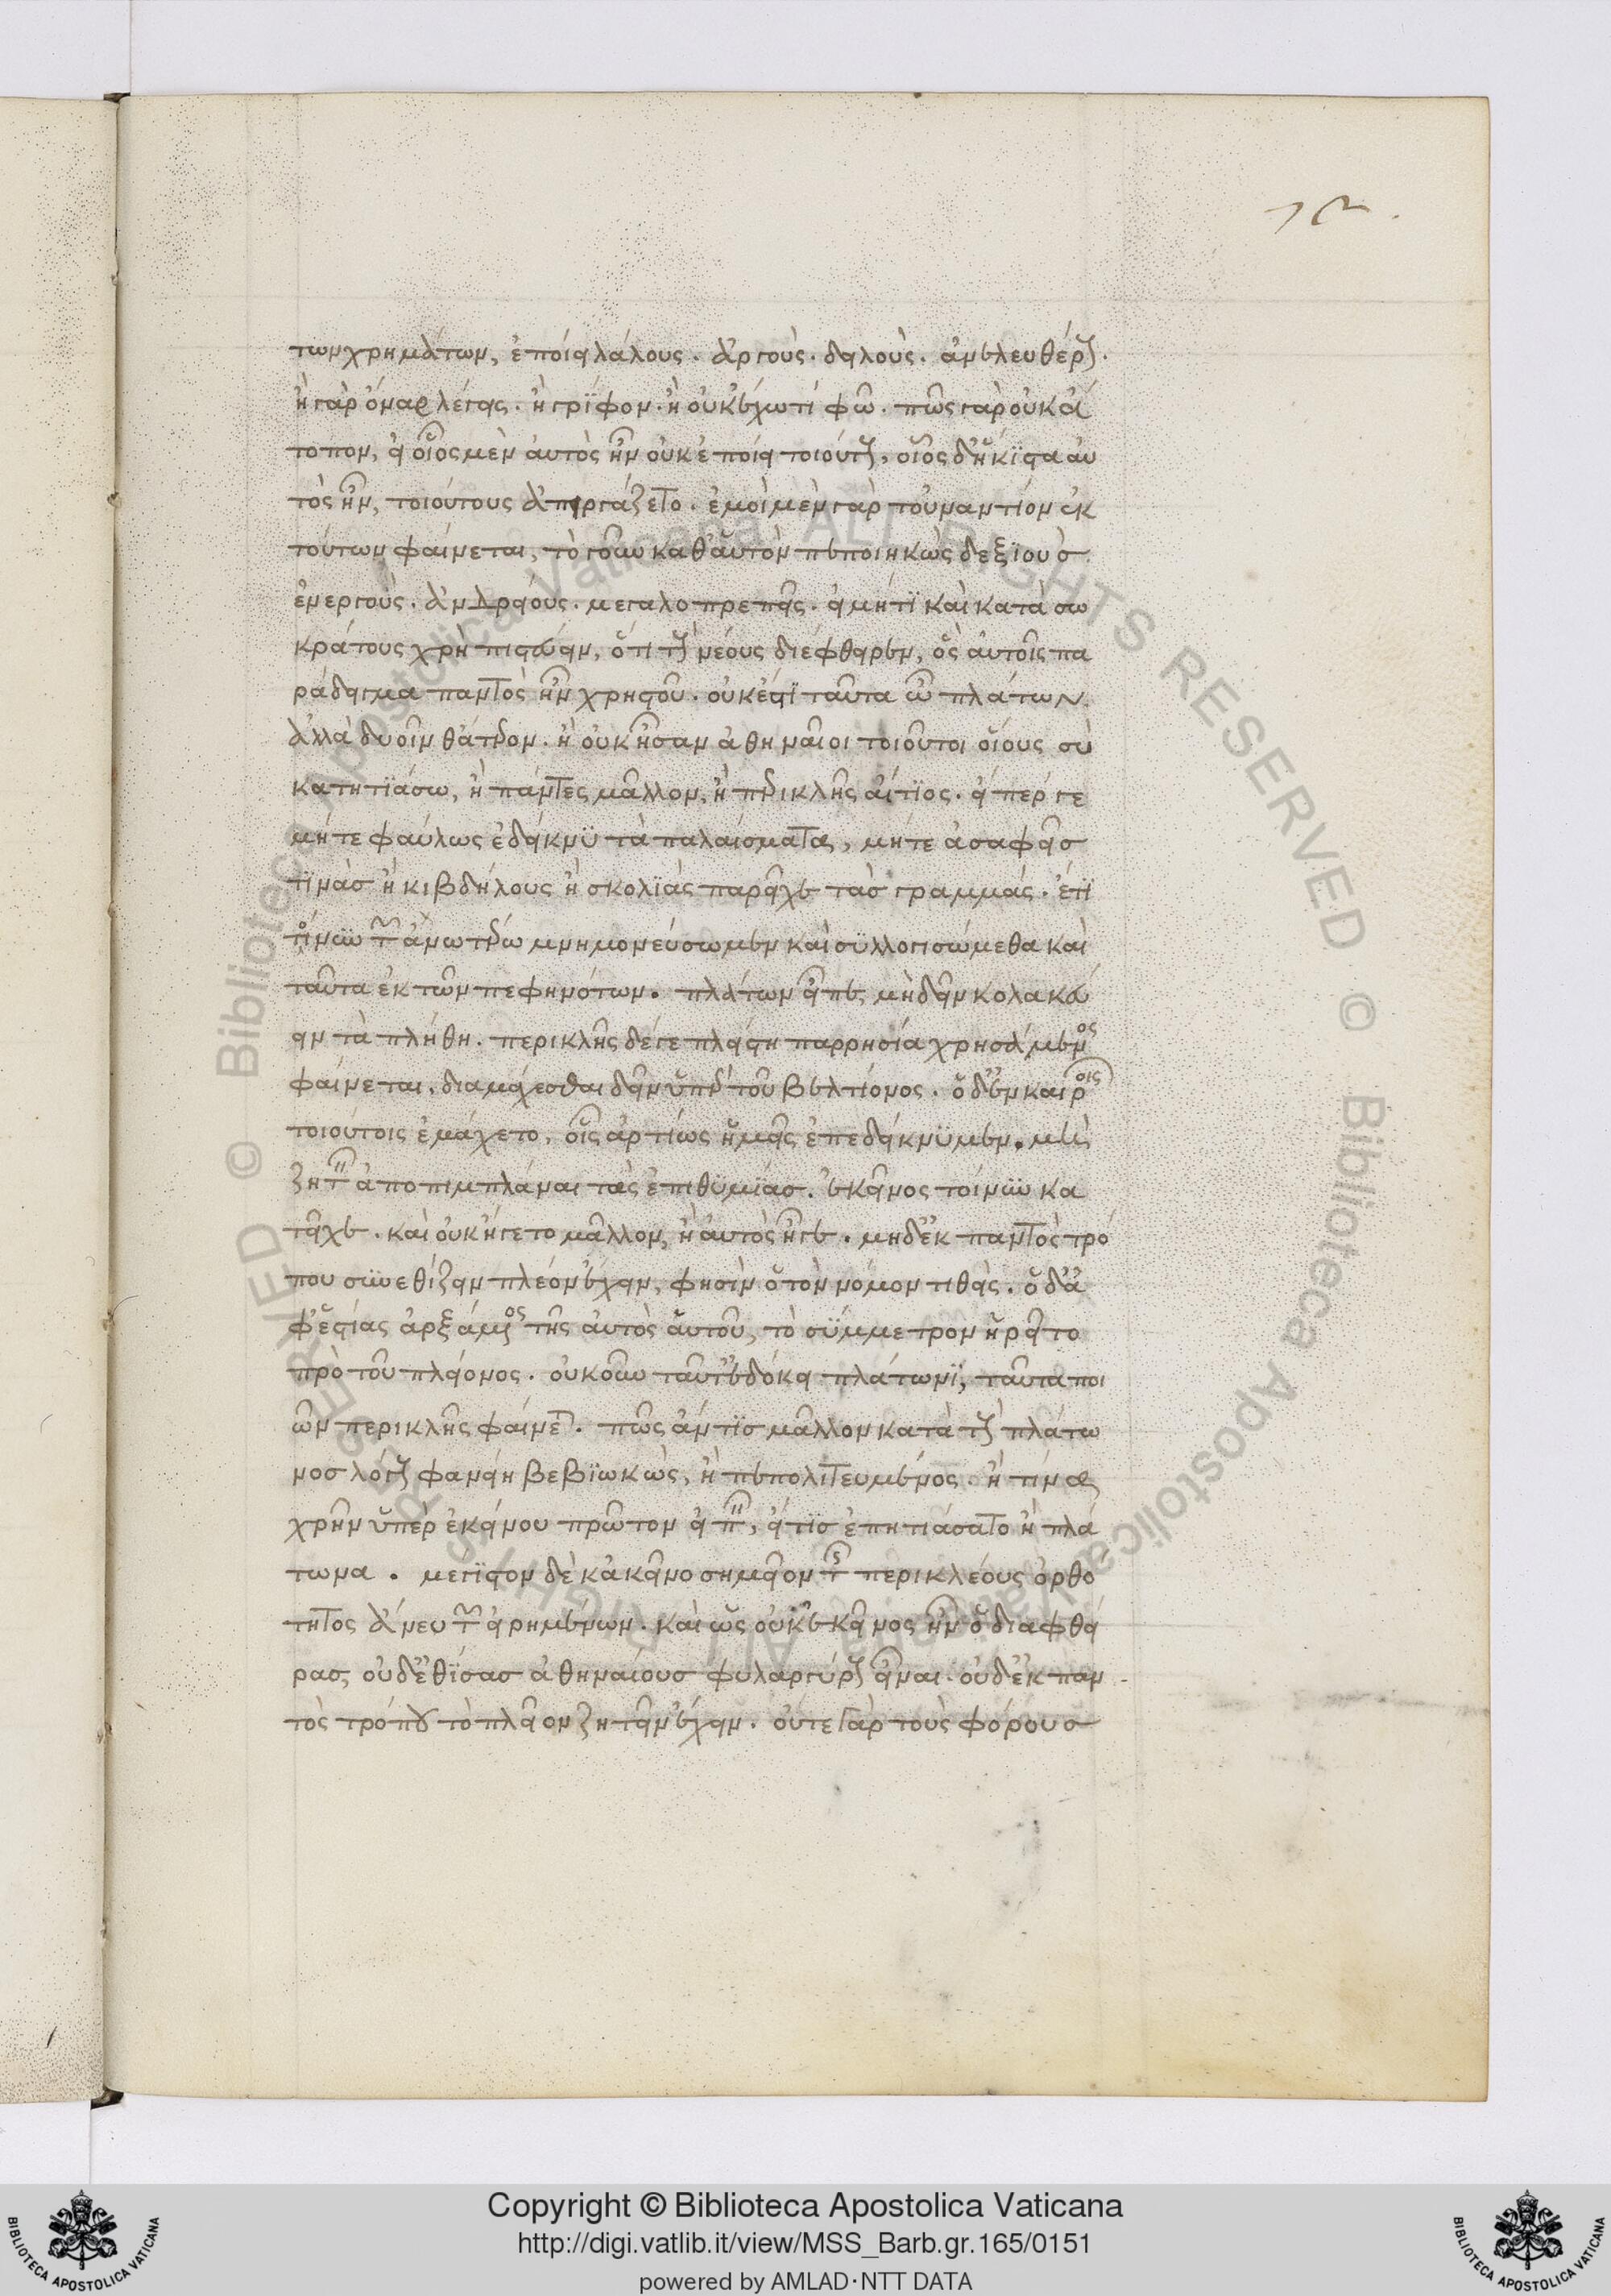 των χρημάτων, ἐποίει λάλους. ἀργοὺς. δειλοὺς. ἀνελευθέρους.
ἢ γὰρ ὄναρ λέγεις. ἢ γρῖφον. ἢ οὐκ ἔχω τί φῶ. πῶς γὰρ οὐκ ἄ
τοπον, εἰ οἷος μὲν αὐτὸς ἦν οὐκ ἐποίει τοιούτους, οἷος δ' ἥκιστα αὐ
τὸς ἦν, τοιούτους ἀπειργάζετο. ἐμοὶ μὲν γὰρ τοὐναντίον ἐκ
τούτων φαίνεται, τὸ γοῦν καθ' αὑτὸν πεποιηκὼς δεξιοὺσ
ἐνεργοὺς. ἀνδρείους. μεγαλοπρεπεῖς. εἰ μήτι καὶ κατὰ σω
κράτους χρὴ πιστεύειν, ὅτι τοὺς νέους διέφθειρεν, ὃς αὐτοῖς πα
ράδειγμα παντὸς ἦν χρηστοῦ. οὐκ ἔστι ταῦτα ὦ πλάτων.
ἀλλὰ δυοῖν θάτερον. ἢ οὐκ ἦσαν ἀθηναῖοι τοιοῦτοι οἵους σὺ
κατητιάσω, ἢ πάντες μᾶλλον, ἢ περικλῆς αἴτιος. εἴπερ γε
μήτε φαύλως ἐδείκνυ τὰ παλαίσματα, μήτε ἀσαφεῖσ
τινὰσ ἢ κιβδήλους ἢ σκολιὰς παρεῖχε τὰσ γραμμάς. ἔτι
τοίνυν τῶν ἀνωτέρω μνημονεύσωμεν καὶ συλλογισώμεθα καὶ
ταῦτα ἐκ τῶν πεφηνότων. πλάτων εἶπε, μὴ δεῖν κολακεύ
ειν τὰ πλήθη. περικλῆς δέ γε πλείστη παρρησία χρησάμενος
φαίνεται. διαμάχεσθαι δεῖν ὑπὲρ τοῦ βελτίονος. ὁ δ' ἐν καιροῖς
τοιούτοις ἐμάχετο, οἷς ἀρτίως ἡμεῖς ἐπεδείκνυμεν. μὴ
ζητεῖν ἀποπιμπλάναι τὰς ἐπιθυμίασ. ἐκεῖνος τοίνυν κα
τεῖχε. καὶ οὐκ ἤγετο μᾶλλον, ἢ αὐτὸς ἦγε. μηδ' ἐκ παντὸς τρό
που συνεθίζειν πλέον ἔχειν, φησὶν ὁ τὸν νόμον τιθεὶς. ὁ δ' ἀ
φ' ἑστίας ἀρξάμενος τῆς αὐτὸς αὑτοῦ, τὸ σύμμετρον ἡρεῖτο
πρὸ τοῦ πλείονος. οὐκοῦν ταῦτ' ἐδόκει πλάτωνι, ταῦτα ποι
ῶν περικλῆς φαίνεται. πῶς ἄν τισ μᾶλλον κατὰ τοὺς πλάτω
νοσ λόγους φανείη βεβιωκὼς, ἢ πεπολιτευμένος. ἢ τίνα
χρῆν ὑπὲρ ἐκείνου πρῶτον εἰπεῖν, εἴ τισ ἐπητιάσατο ἢ πλά
τωνα. μέγιστον δὲ κἀκεῖνο σημεῖον τῆς περικλέους ὀρθό
τητος ἄνευ τῶν εἰρημένων. καὶ ὡς οὐκ ἐκεῖνος ἦν ὁ διαφθεί
ρας, οὐδ' ἐθίσασ ἀθηναίουσ φυλαργύρους εἶναι. οὐδ' ἐκ παν
τὸς τρόπου τὸ πλεῖον ζητεῖν ἔχειν. οὔτε γὰρ τοὺς φόρουσ
Copyright © Biblioteca Apostolica Vaticana
http://digi.vatlib.it/view/MSS_Barb.gr.165/0151
powered by AMLAD·NTT DATA